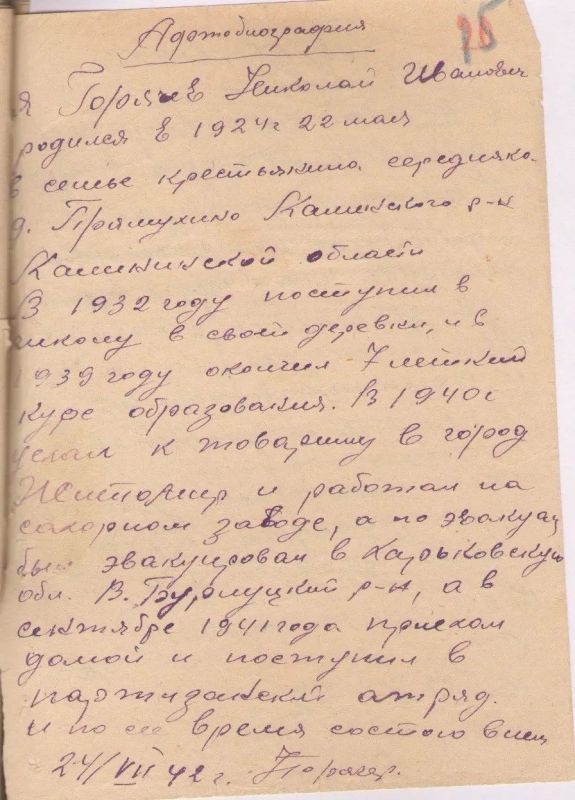 Афтобиография
26
я Горячев Николай Иванович
родился в 1924 г 22 мая
в семье крестьянина середняка.
д. Прямухино Каминского р-н
Калининской области
В 1932 году поступил в
школу в своей деревни, и в
1939 году окончил 7 летний
курс образования. В 1940 г
уехал к товарищу в город
Житомир и работал на
сахорном заводе, а по эвакуац
был эвакуирован в Харьковскую
обл. В. Бурлуцкий р-н, а в
сентябре 1941 года приехал
домой и поступил в
партизанский атряд.
и по се время состою в нем
24/VII 42 г. Горячев.